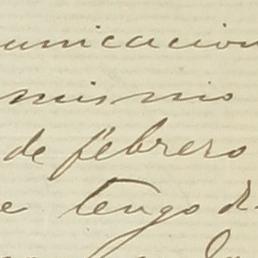 unicacion
mismo
de febrero
e tengo d